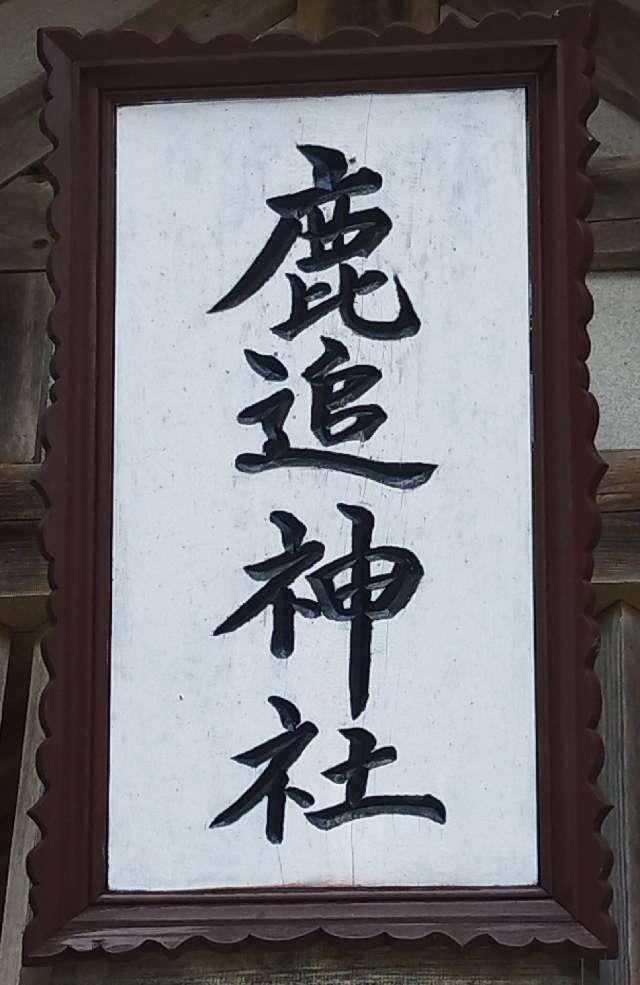 鹿追神社